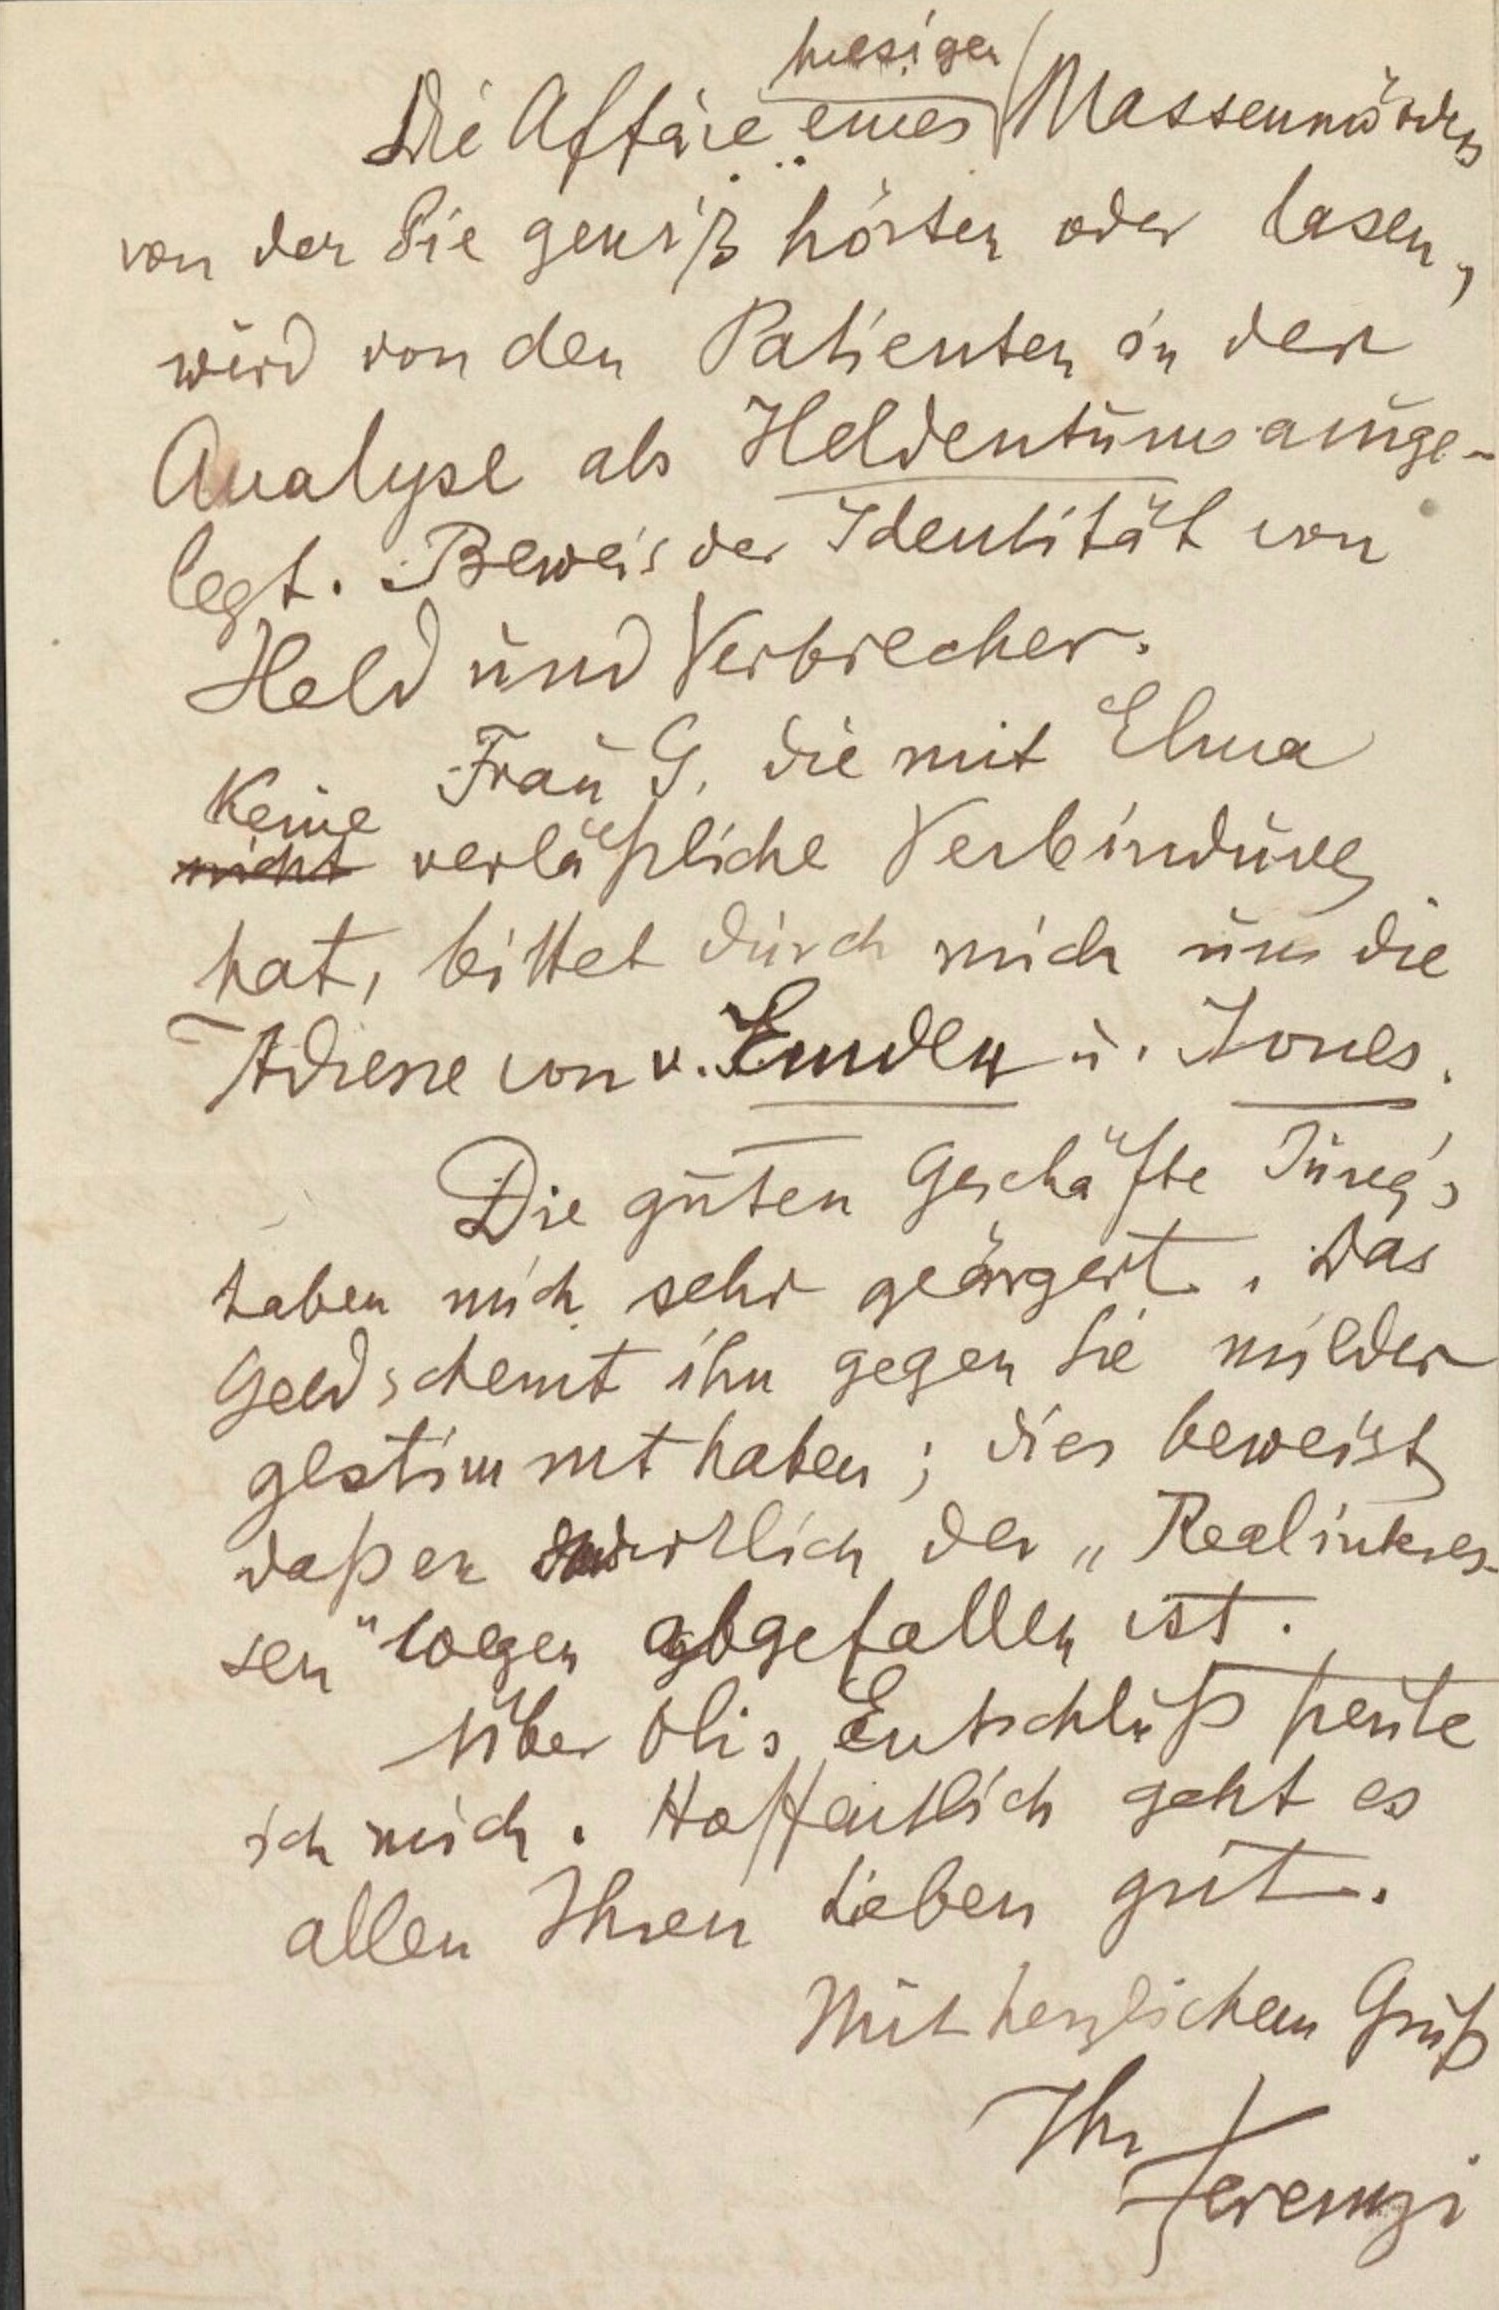 hiesigen
Die Affäre eines Massenmörders
von der Sie gewiß hörten oder lasen,
wird von den Patienten in der
Analyse als Heldentum ausge-
legt. Beweis der Identität von
Held und Verbrecher.
Frau G. die mit Elma
keine
nicht verläßliche Verbindung
hat, bittet durch mich um die
Adresse von v. Emden u. Jones.
Die guten Geschäfte Jung's
haben mich sehr geärgert. Das
Geld scheint ihn gegen Sie milder
gestimmt haben; dies beweist
daß er wirklich der „Realinteres-
sen" wegen abgefallen ist.
Über Olis Entschluß freute
ich mich. Hoffentlich geht es
allen Ihren Lieben gut.
Mit herzlichem Gruß
Ihr
Ferenczi